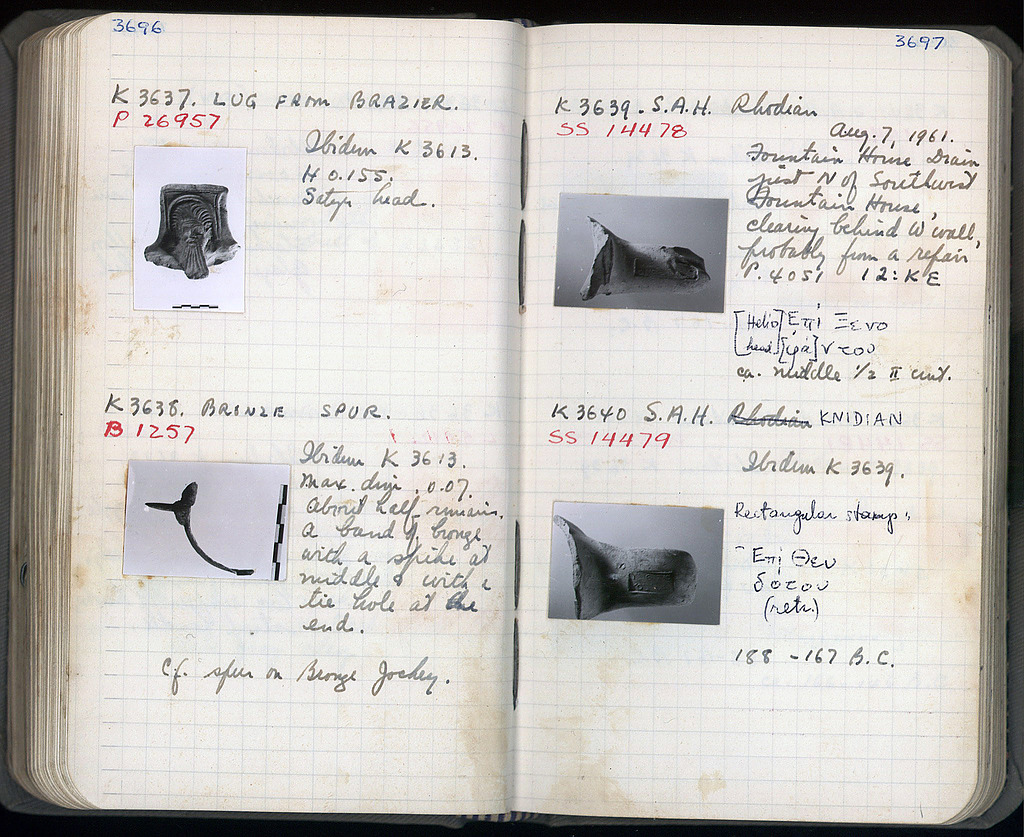 3696
K 3637. LUG FROM BRAZIER.
P 26957
Ibidem K 3613.
H 0.155.
Satyr head.
K 3638. BRONZE SPUR.
B 1257
Ibidem K 3613.
Max. dim. 0.07.
About half remains,
a band of bronze
with a spike at
middle & with a
tie hole at the
end.
Cf. spur on Bronze Jockey.
3697
K 3639. S.A.H. Rhodian
SS 14478
Aug. 7, 1961.
Fountain House Drain
just N of Southwest
Fountain House,
clearing behind W wall,
probably from a repair
P. 4051 12:KE
[Helio Ἐπὶ Ξενο
head] [φά]ντου
ca. middle 1/2 II cent.
K 3640 S.A.H. Rhodian KNIDIAN
SS 14479
Ibidem K 3639.
Rectangular stamp:
Ἐπὶ Θευ
δότου
(retr.)
188 - 167 B.C.